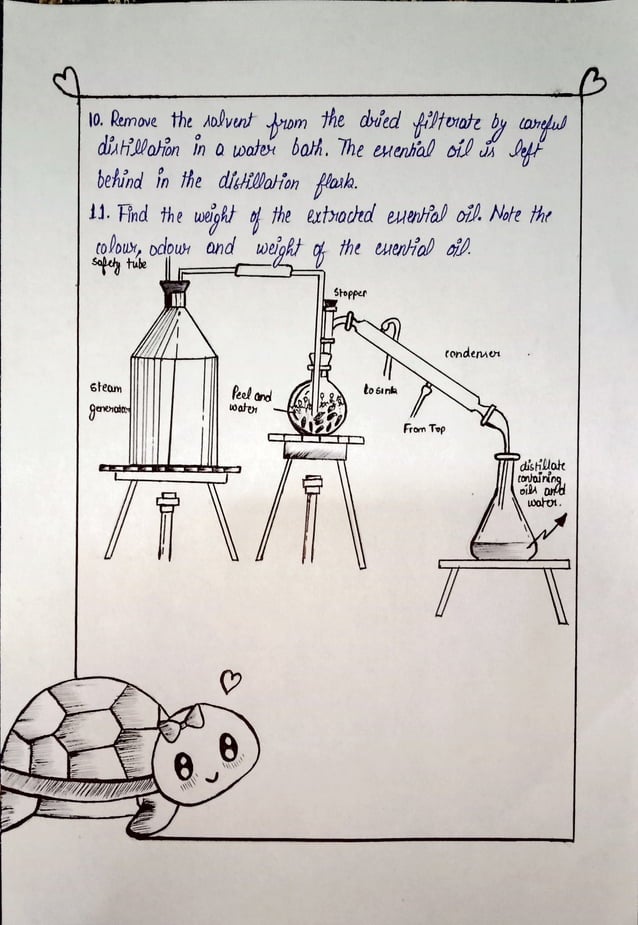 10. Remove the solvent from the dried filterate by careful
distillation in a water bath. The essential oil is left
behind in the distillation flask.
11. Find the weight of the extracted essential oil. Note the
colour, odour and weight of the essential oil.
Safety tube
Stopper
condenser
Steam
generator
Peel and
water
to sink
From Tap
distillate
containing
oils and
water.